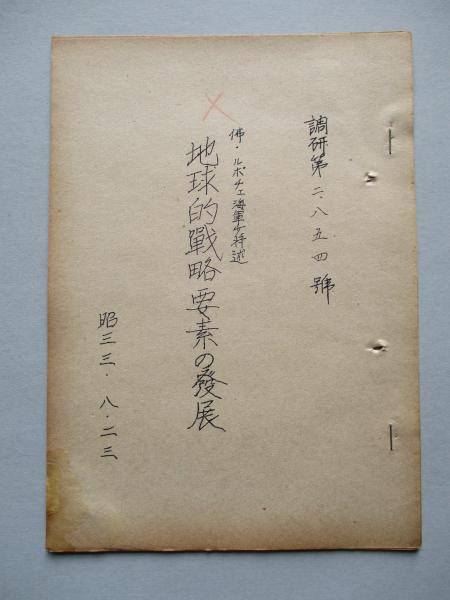 調研第二、八五四號
佛・ルポチェ海軍少将述
地球的戰略要素の發展
昭三三・八・二三